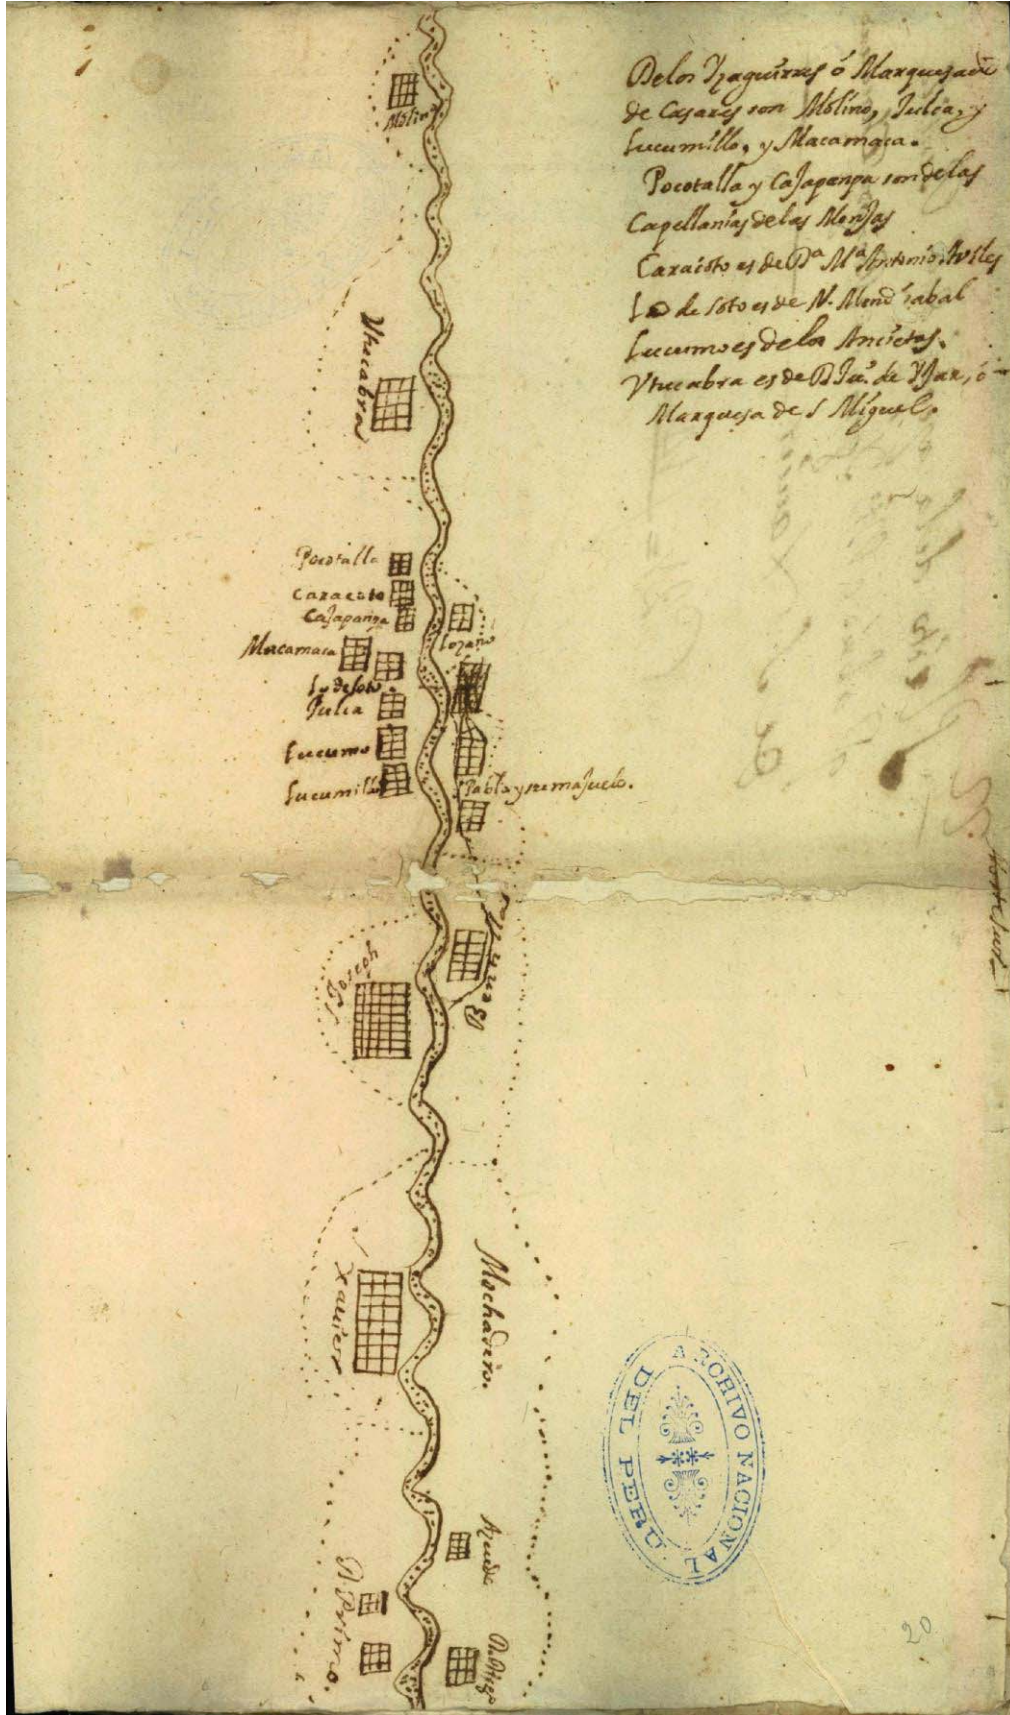 De los Yzaguirres ó Marquesado
de Casares son Molino, Julca, y
Lucumillo, y Macamaca.
Pocotalla y CaJapanpa son de las
Capellanias de las MonJas
Caracoto es de Dª Mª Antonio Aviles
Lo de Soto es de N. Mendisabal
Lucumo es de los Ancietas.
Ytucabra es de D Ju. de YJar, ó
Marquesa de S Miguel.
Molino
Ytucabra
Pocotalla
Caracoto
CaJapanpa
Macamaca
Lozano
Lo de Soto
Julca
Lucumo
Lucumillo
Pabla y su maJuelo.
S Joseph
Xavier
Mochadero.
El Primo.
ARCHIVO NACIONAL
DEL PERÚ
20